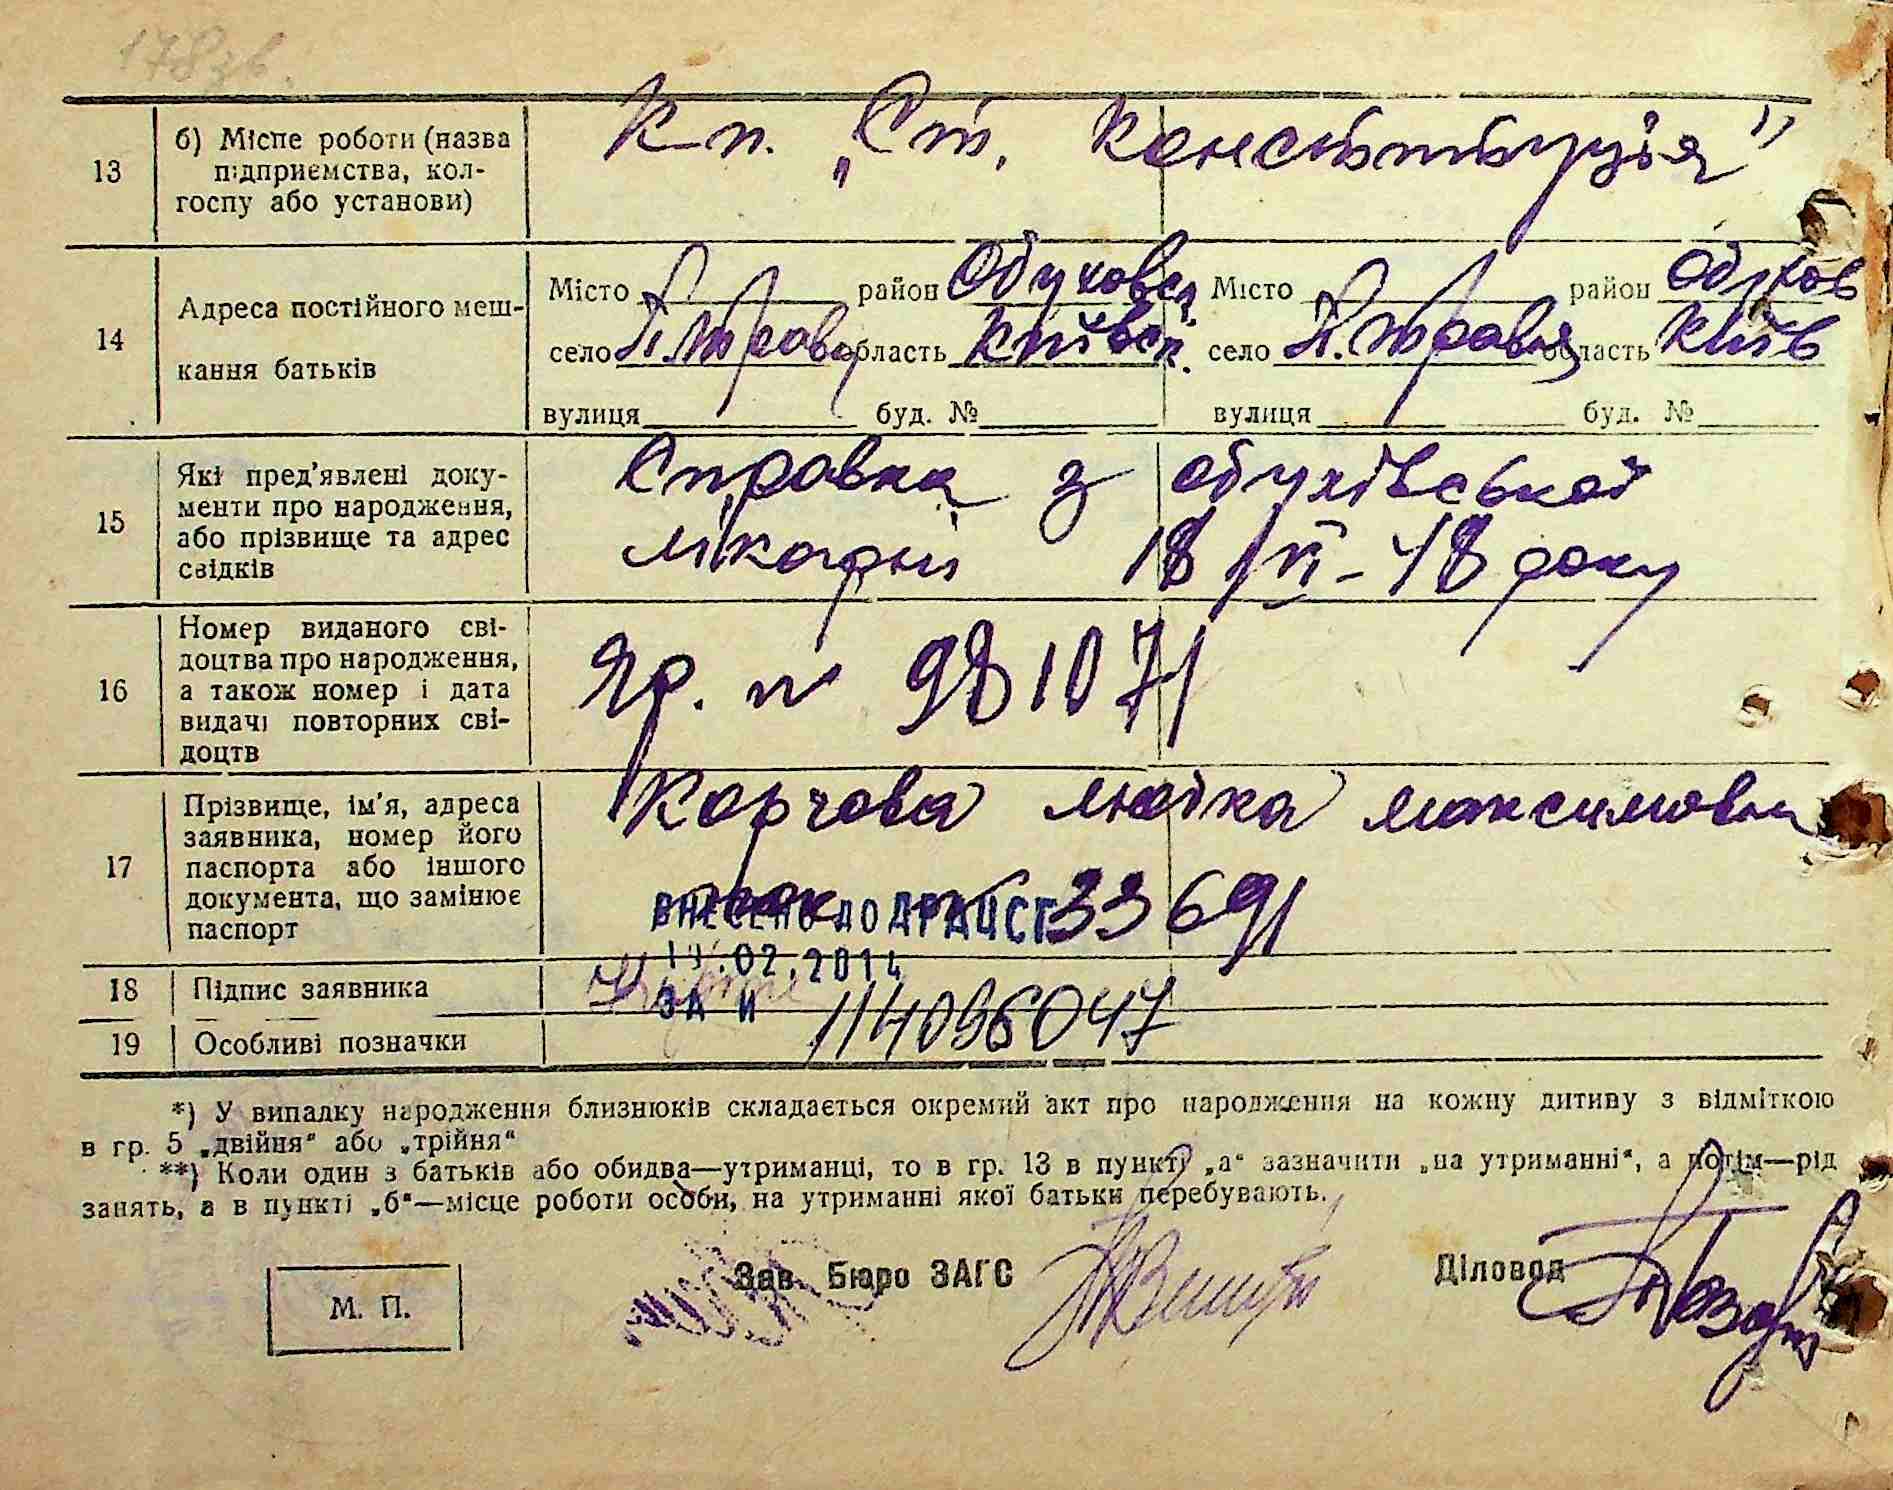 178зв.
13
б) Місце роботи (назва
підприємства, кол-
госпу або установи)
К-п. „Ст. Конституція"
14
Адреса постійного меш-
кання батьків
Місто район Обуховск. Місто район Обухов
село П. Травня область Київськ. село П. Травня область Київ
вулиця буд. № вулиця буд. №
15
Які пред'явлені доку-
менти про народження,
або прізвище та адрес
свідків
Справка з обухівської
лікарні 18/VI-48 року
16
Номер виданого сві-
доцтва про народження,
а також номер і дата
видачі повторних сві-
доцтв
ЯР. № 981071
17
Прізвище, ім'я, адреса
заявника, номер його
паспорта або іншого
документа, що замінює
паспорт
Корчова максимовна
ВНЕСЕНО ДО ДРАЦСГ 33691
19.02.2014
18
Підпис заявника
ЗА № 114096047
19
Особливі позначки
*) У випадку народження близнюків складається окремий акт про народження на кожну дитину з відміткою
в гр. 5 „двійня" або „трійня"
**) Коли один з батьків або обидва—утриманці, то в гр. 13 в пункті „а" зазначити „на утриманні", а потім—рід
занять, а в пункті „б"—місце роботи особи, на утриманні якої батьки перебувають.
М. П.
Зав. Бюро ЗАГС
Діловод